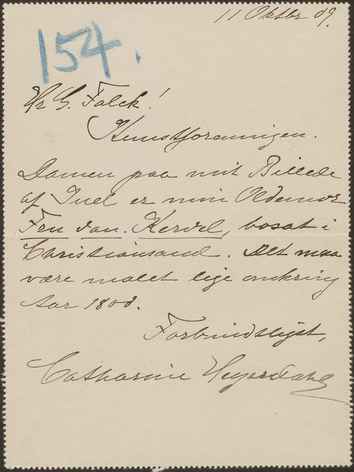 11 Oktbr 09.
154.
Hr G. Falck!
Kunstforeningen.
Damen paa mit Billede
af Juel er min Oldemor
Fru van Kervel, bosat i
Christianssand. Det maa
være malet lige omkring
Aar 1800.
Forbindtligst,
Catharine Heyerdahl